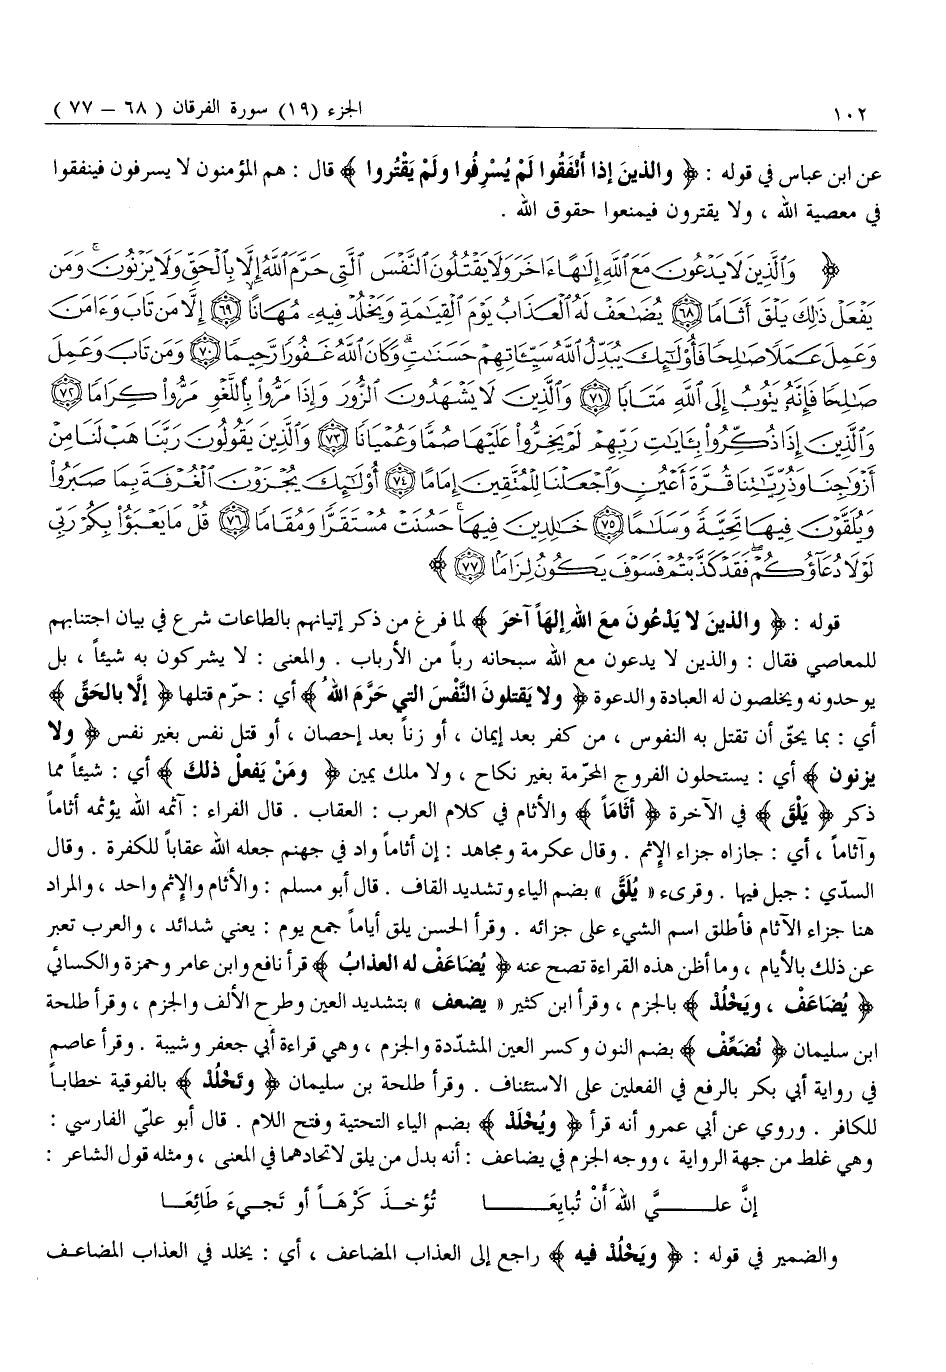 ١٠٢ الجزء (١٩) سورة الفرقان ( ٦٨ – ٧٧ )
عن ابن عباس في قوله : ﴿ والذينَ إذا أَنْفَقُوا لَمْ يُسْرِفُوا ولَمْ يَقْتُروا ﴾ قال : هم المؤمنون لا يسرفون فينفقوا
في معصية الله ، ولا يقترون فيمنعوا حقوق الله .
﴿ وَالَّذِينَ لَا يَدْعُونَ مَعَ اللَّهِ إِلَٰهًا ءَاخَرَ وَلَا يَقْتُلُونَ النَّفْسَ الَّتِي حَرَّمَ اللَّهُ إِلَّا بِالْحَقِّ وَلَا يَزْنُونَ ۚ وَمَن
يَفْعَلْ ذَٰلِكَ يَلْقَ أَثَامًا ﴿٦٨﴾ يُضَاعَفْ لَهُ الْعَذَابُ يَوْمَ الْقِيَامَةِ وَيَخْلُدْ فِيهِ مُهَانًا ﴿٦٩﴾ إِلَّا مَن تَابَ وَءَامَنَ
وَعَمِلَ عَمَلًا صَالِحًا فَأُوْلَٰئِكَ يُبَدِّلُ اللَّهُ سَيِّئَاتِهِمْ حَسَنَاتٍ ۗ وَكَانَ اللَّهُ غَفُورًا رَّحِيمًا ﴿٧٠﴾ وَمَن تَابَ وَعَمِلَ
صَالِحًا فَإِنَّهُ يَتُوبُ إِلَى اللَّهِ مَتَابًا ﴿٧١﴾ وَالَّذِينَ لَا يَشْهَدُونَ الزُّورَ وَإِذَا مَرُّوا بِاللَّغْوِ مَرُّوا كِرَامًا ﴿٧٢﴾
وَالَّذِينَ إِذَا ذُكِّرُوا بِـَٔايَاتِ رَبِّهِمْ لَمْ يَخِرُّوا عَلَيْهَا صُمًّا وَعُمْيَانًا ﴿٧٣﴾ وَالَّذِينَ يَقُولُونَ رَبَّنَا هَبْ لَنَا مِنْ
أَزْوَاجِنَا وَذُرِّيَّاتِنَا قُرَّةَ أَعْيُنٍ وَاجْعَلْنَا لِلْمُتَّقِينَ إِمَامًا ﴿٧٤﴾ أُوْلَٰئِكَ يُجْزَوْنَ الْغُرْفَةَ بِمَا صَبَرُوا
وَيُلَقَّوْنَ فِيهَا تَحِيَّةً وَسَلَامًا ﴿٧٥﴾ خَالِدِينَ فِيهَا ۚ حَسُنَتْ مُسْتَقَرًّا وَمُقَامًا ﴿٧٦﴾ قُلْ مَا يَعْبَؤُا بِكُمْ رَبِّي
لَوْلَا دُعَاؤُكُمْ ۖ فَقَدْ كَذَّبْتُمْ فَسَوْفَ يَكُونُ لِزَامًا ﴿٧٧﴾ ﴾
قوله : ﴿ والذينَ لا يَدْعُونَ معَ اللهِ إلهَاً آخرَ ﴾ لما فرغ من ذكر إتيانهم بالطاعات شرع في بيان اجتنابهم
للمعاصي فقال : والذين لا يدعون مع الله سبحانه رباً من الأرباب . والمعنى : لا يشركون به شيئاً ، بل
يوحدونه ويخلصون له العبادة والدعوة ﴿ ولا يَقتلونَ النَّفْسَ التي حَرَّمَ اللهُ ﴾ أي : حرّم قتلها ﴿ إلَّا بالحَقِّ ﴾
أي : بما يحقّ أن تقتل به النفوس ، من كفر بعد إيمان ، أو زناً بعد إحصان ، أو قتل نفس بغير نفس ﴿ ولا
يزنون ﴾ أي : يستحلون الفروج المحرّمة بغير نكاح ، ولا ملك يمين ﴿ ومَنْ يَفعلْ ذلكَ ﴾ أي : شيئاً مما
ذكر ﴿ يَلْقَ ﴾ في الآخرة ﴿ أثَامَاً ﴾ والأثام في كلام العرب : العقاب . قال الفراء : آثمه الله يؤثمه أثاماً
وآثاماً ، أي : جازاه جزاء الإثم . وقال عكرمة ومجاهد : إن أثاماً واد في جهنم جعله الله عقاباً للكفرة . وقال
السدّي : جبل فيها . وقرىء « يُلَقَّ » بضم الياء وتشديد القاف . قال أبو مسلم : والأثام والإثم واحد ، والمراد
هنا جزاء الآثام فأطلق اسم الشيء على جزائه . وقرأ الحسن يلق أياماً جمع يوم : يعني شدائد ، والعرب تعبر
عن ذلك بالأيام ، وما أظن هذه القراءة تصح عنه ﴿ يُضَاعَفْ له العذابُ ﴾ قرأ نافع وابن عامر وحمزة والكسائي
﴿ يُضَاعَفْ ، ويَخْلُدْ ﴾ بالجزم ، وقرأ ابن كثير « يضعف » بتشديد العين وطرح الألف والجزم ، وقرأ طلحة
ابن سليمان ﴿ نُضَعِّفْ ﴾ بضم النون وكسر العين المشدّدة والجزم ، وهي قراءة أبي جعفر وشيبة . وقرأ عاصم
في رواية أبي بكر بالرفع في الفعلين على الاستئناف . وقرأ طلحة بن سليمان ﴿ وتَخْلُدْ ﴾ بالفوقية خطاباً
للكافر . وروي عن أبي عمرو أنه قرأ ﴿ ويُخْلَدْ ﴾ بضم الياء التحتية وفتح اللام . قال أبو عليّ الفارسي :
وهي غلط من جهة الرواية ، ووجه الجزم في يضاعف : أنه بدل من يلق لاتحادهما في المعنى ، ومثله قول الشاعر :
إنَّ علــيَّ اللهَ أنْ تُبايِعَــا تُؤخـذَ كَرْهَـاً أو تَجـيءَ طَائِعَـا
والضمير في قوله : ﴿ ويَخْلُدْ فيه ﴾ راجع إلى العذاب المضاعف ، أي : يخلد في العذاب المضاعف